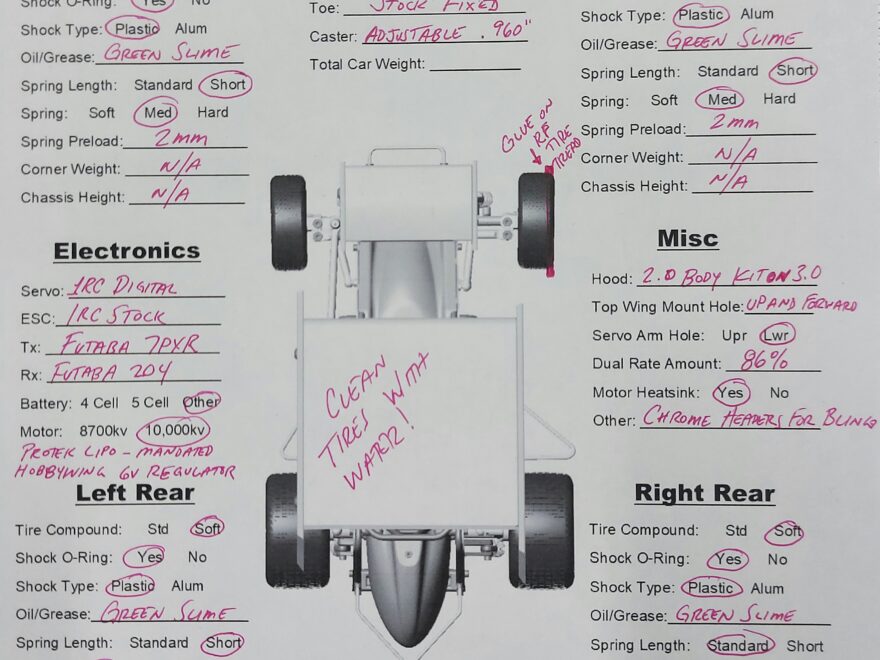 Shock O-Ring: Yes No
Shock Type: Plastic Alum
Oil/Grease: GREEN SLIME
Spring Length: Standard Short
Spring: Soft Med Hard
Spring Preload: 2mm
Corner Weight: N/A
Chassis Height: N/A
Toe: STOCK FIXED
Caster: ADJUSTABLE .960"
Total Car Weight:
Shock Type: Plastic Alum
Oil/Grease: GREEN SLIME
Spring Length: Standard Short
Spring: Soft Med Hard
Spring Preload: 2mm
Corner Weight: N/A
Chassis Height: N/A
GLUE ON
RF
TIRE
TREAD
Electronics
Servo: 1RC DIGITAL
ESC: 1RC STOCK
Tx: FUTABA 7PXR
Rx: FUTABA 204
Battery: 4 Cell 5 Cell Other
Motor: 8700kv 10,000kv
PROTEK LIPO - MANDATED
HOBBYWING 6V REGULATOR
CLEAN
TIRES WITH
WATER!
Misc
Hood: 2.0 BODY KIT ON 3.0
Top Wing Mount Hole: UP AND FORWARD
Servo Arm Hole: Upr Lwr
Dual Rate Amount: 86%
Motor Heatsink: Yes No
Other: CHROME HEADERS FOR BLING
Left Rear
Tire Compound: Std Soft
Shock O-Ring: Yes No
Shock Type: Plastic Alum
Oil/Grease: GREEN SLIME
Spring Length: Standard Short
Right Rear
Tire Compound: Std Soft
Shock O-Ring: Yes No
Shock Type: Plastic Alum
Oil/Grease: GREEN SLIME
Spring Length: Standard Short